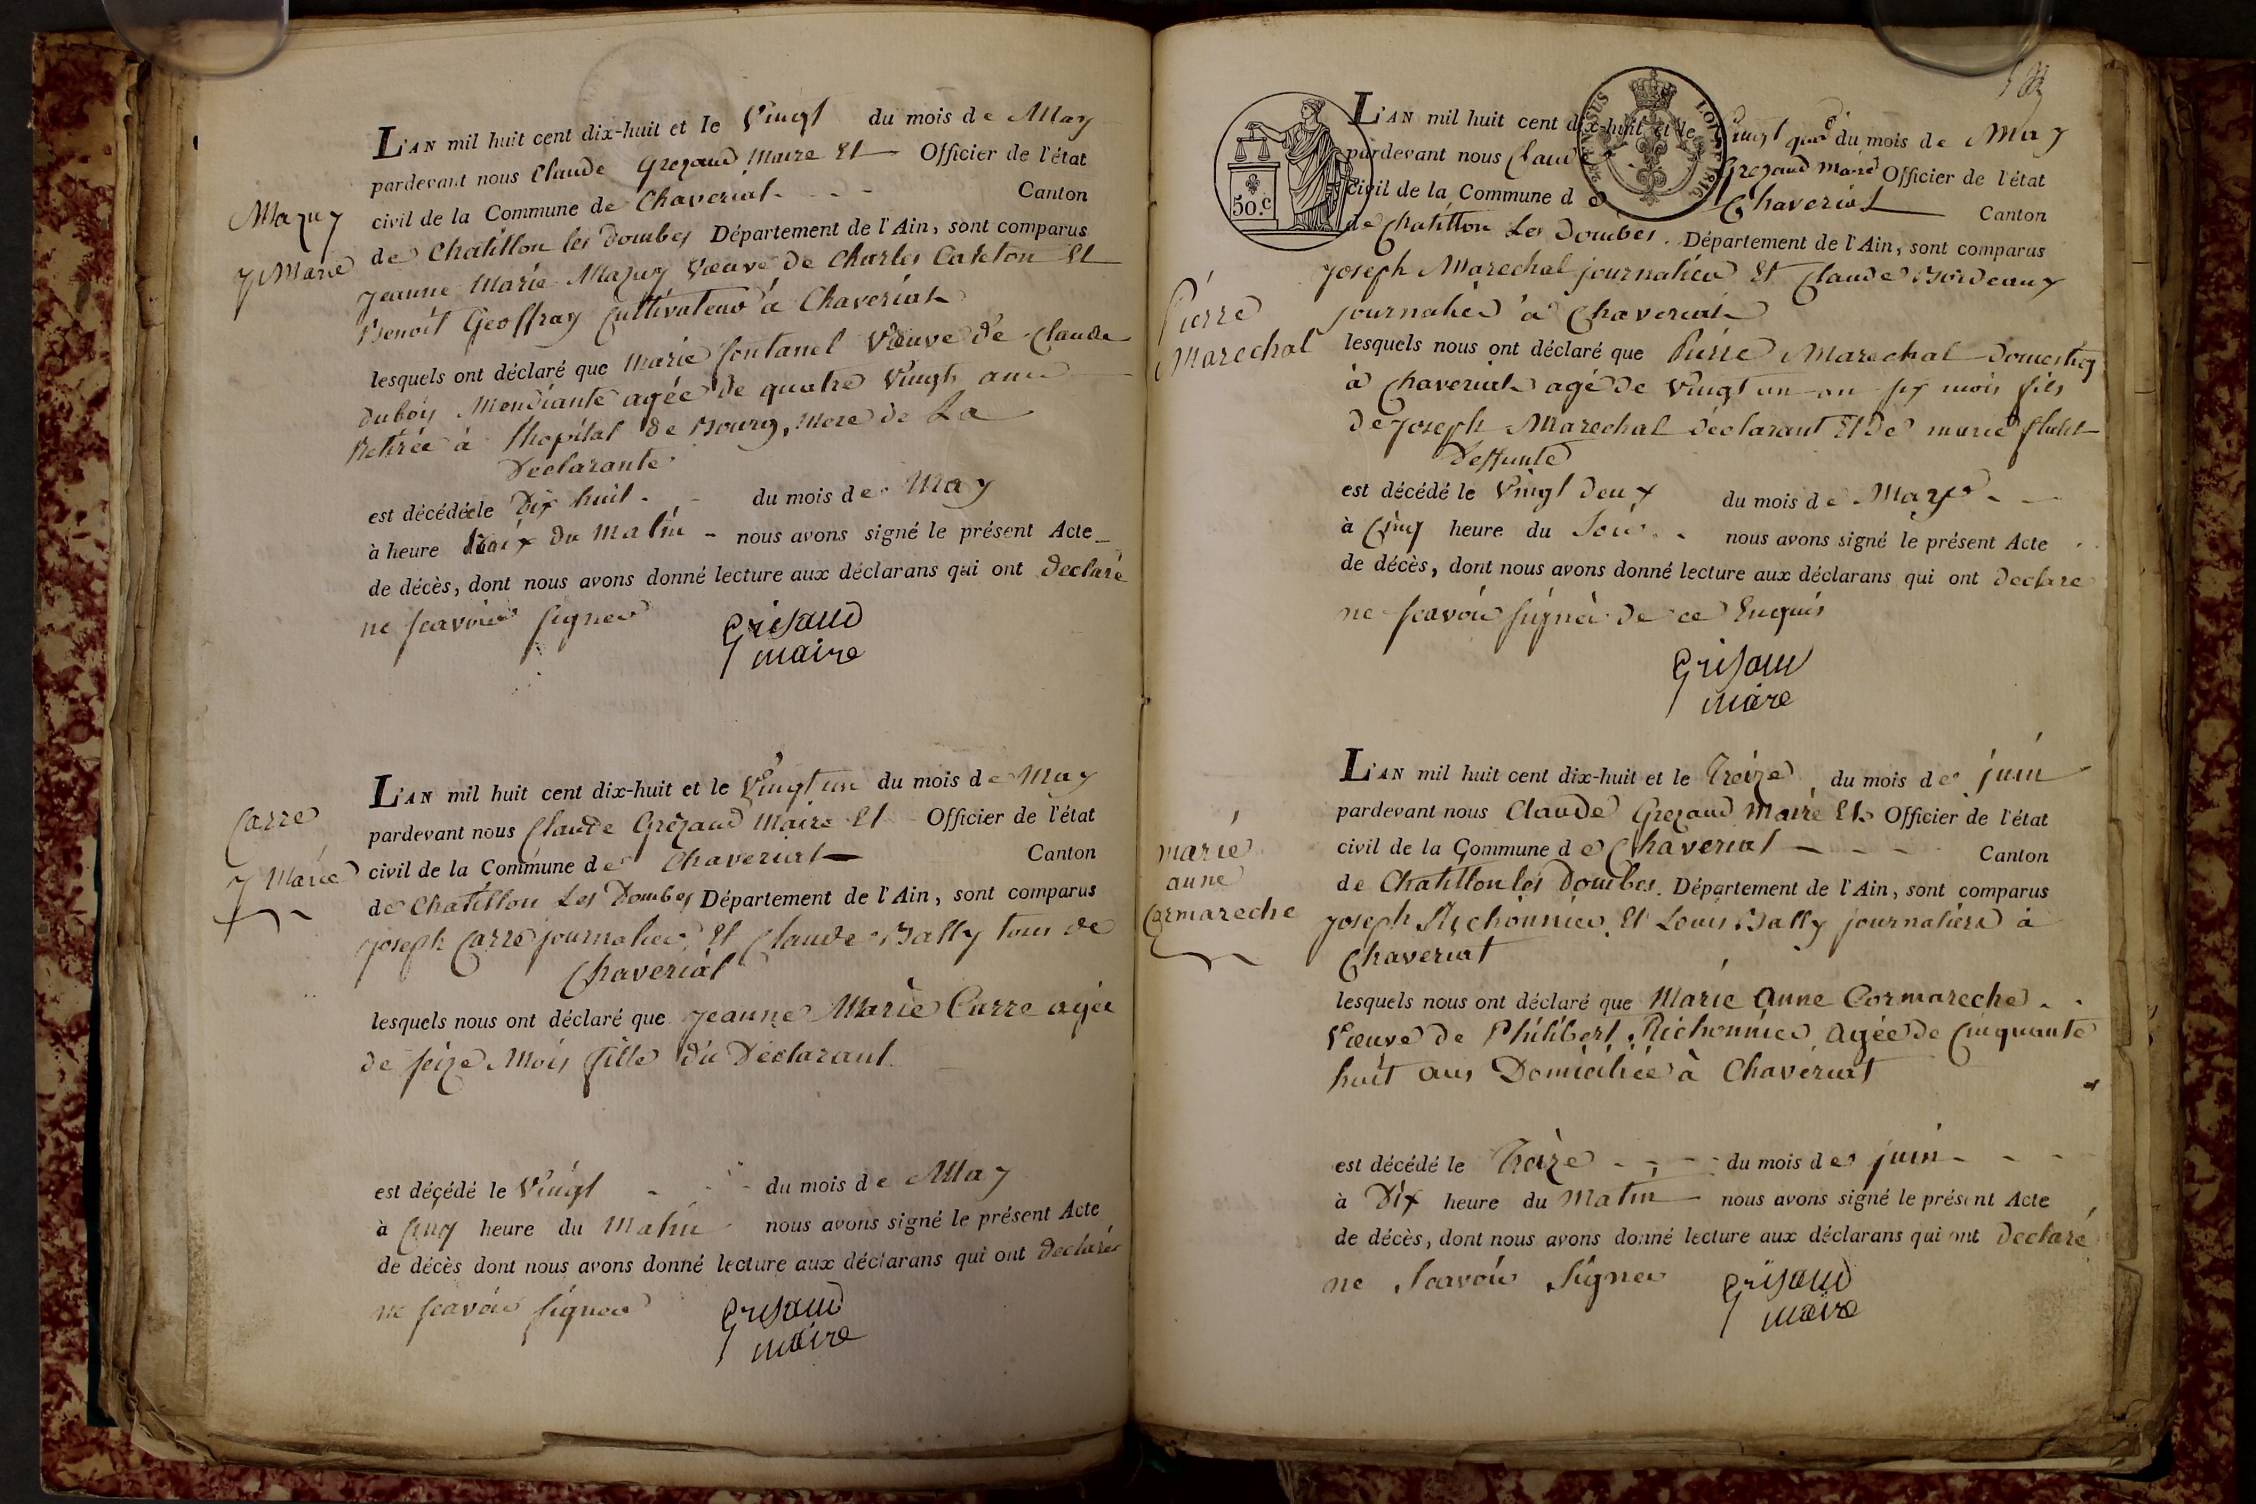 L'AN mil huit cent dix-huit et le Vingt du mois de May
pardevant nous Claude Grezaud Maire Et Officier de l'état
civil de la Commune de Chaveriat Canton
de Chatillon les Dombes Département de l'Ain, sont comparus
Mazuy
J Marie
Jeanne Marie Mazuy Vœuve de Charles Carleton Et
Benoit Geoffray Cultivateur à Chaveriat
lesquels ont déclaré que Marie fontanel Vœuve de Claude
Dubois Mendiante agée de quatre Vingts ans
Retirée à l'hopital de Bourg, Mere de La
Declarante
est décédée le Dix huit du mois de May
à heure du Matin nous avons signé le présent Acte
de décès, dont nous avons donné lecture aux déclarans qui ont declaré
ne scavoir signer Grisaud
maire
L'AN mil huit cent dix-huit et le Vingt un du mois de May
pardevant nous Claude Grézaud Maire Et Officier de l'état
civil de la Commune de Chaveriat Canton
de Chatillon Les Dombes Département de l'Ain, sont comparus
Carre
J Marie
Joseph Carre journalier Et Claude Bally tous de
Chaveriat
lesquels nous ont déclaré que Jeanne Marie Carre agée
de seize Mois fille du Déclarant
est décédé le Vingt du mois de May
à Cinq heure du Matin nous avons signé le présent Acte
de décès dont nous avons donné lecture aux déclarans qui ont declaré
ne scavoir signer Grisaud
maire
50.c
LOI DE 1816
L'AN mil huit cent dix-huit et le Vingt du mois de May
pardevant nous Claude Grezaud Maire Officier de l'état
civil de la Commune de Chaveriat Canton
de Chatillon Les Dombes. Département de l'Ain, sont comparus
Pierre
Marechal
Joseph Marechal journalier Et Claude Bordeaux
journalier à Chaveriat
lesquels nous ont déclaré que Pierre Marechal Domestiq
à Chaveriat agé de Vingt un an six mois fils
de Joseph Marechal déclarant Et de marie
Deffunte
est décédé le Vingt Deux du mois de May
à Cinq heure du Soir nous avons signé le présent Acte
de décès, dont nous avons donné lecture aux déclarans qui ont declaré
ne scavoir signer de ce Enquis
Grisaud
maire
L'AN mil huit cent dix-huit et le Treize du mois de juin
pardevant nous Claude Grezaud Maire Et Officier de l'état
civil de la Commune de Chaveriat Canton
de Chatillon les Dombes. Département de l'Ain, sont comparus
marie
anne
Cormareche
Joseph Richonnier Et Louis Bally journaliers à
Chaveriat
lesquels nous ont déclaré que Marie Anne Cormareche
Vœuve de Philibert Richonnier Agée de Cinquante
huit ans Domiciliée à Chaveriat
est décédé le Treize du mois de juin
à Dix heure du Matin nous avons signé le présent Acte
de décès, dont nous avons donné lecture aux déclarans qui ont declaré
ne Scavoir Signer Grisaud
maire